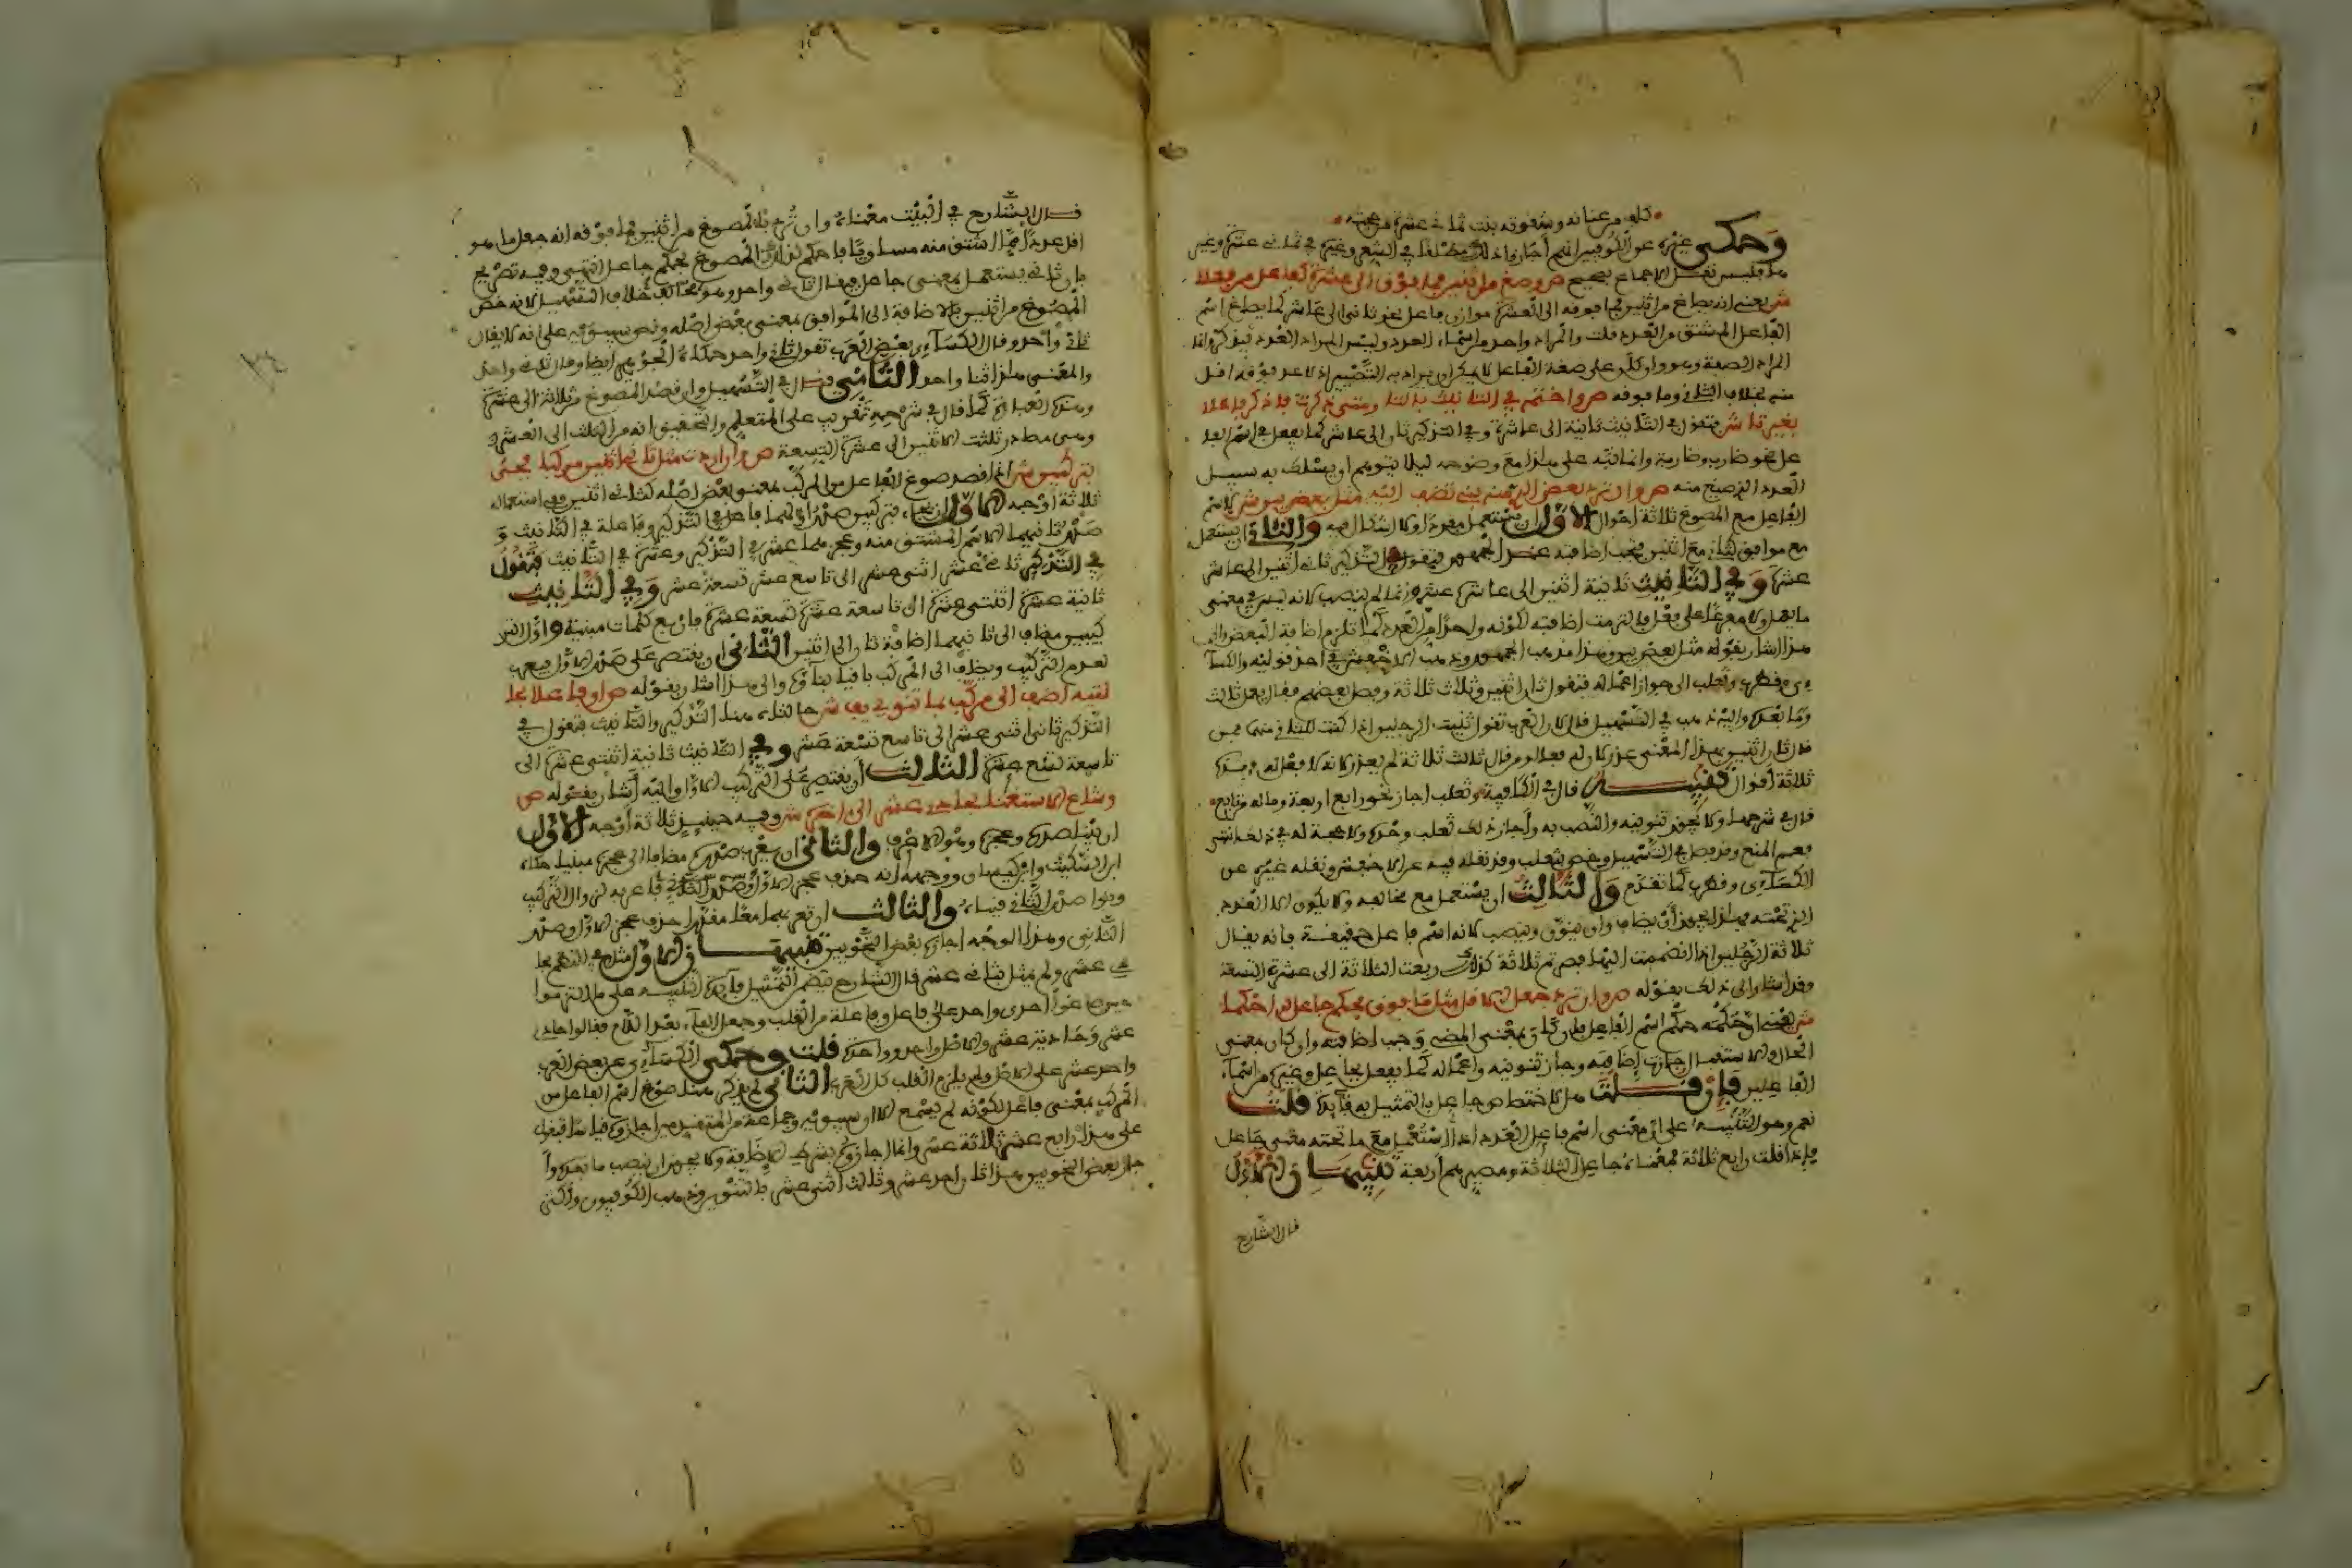 كلف من عنائه وشقوته بنت ثماني عشرة من حجته
وحكى غيره عن الكوفيين انهم اجازوا ذلك مطلقا في الشعر وغيره في ثماني عشرة وغير
ها فليس نقل الاجماع بصحيح ص وصغ من اثنين فما فوق الى عشرة كفاعل من فعلا
ش يعني انه يصاغ من اثنين فما فوقه الى العشرة موازن فاعل نحو ثاني الى عاشر كما يصاغ اسم
الفاعل المشتق من العدد قلت والمراد واحد من اسماء العدد وليس المراد العدد
المراد الصفة وهو وان كان على صفة الفاعل لا يمكن ان يراد به التصيير اذ لا عدد فوقه اقل
منه بخلاف الثاني وما فوقه ص واختمه في التانيث بالتا ومتى ذكرت فاذكر فاعلا
بغير تا ش فتقول في التانيث ثانية الى عاشرة وفي التذكير ثان الى عاشر كما يفعل في اسم الفا
عل نحو ضارب وضاربة وانما نبه على هذا مع وضوحه ليلا يتوهم انه يسلك به سبيل
العدد الذي صيغ منه ص وان ترد بعض الذي منه بني تضف اليه مثل بعض بين ش لاسم
الفاعل مع المصوغ ثلاثة احوال الاول ان يستعمل مفردا ولا اشكال فيه والثاني ان يستعمل
مع موافق كثان مع اثنين فيجب اضافته عند الجمهور فتقول في التذكير ثاني اثنين الى عاشر
عشرة وفي التانيث ثانية اثنين الى عاشرة عشر وانما لم ينصب لانه ليس في معنى
ما يعمل ولا مفرعا على فعل فالتزمت اضافته لكونه واحدا من العدد كما تلزم اضافة البعض والى
هذا اشار بقوله مثل بعض بين وهذا مذهب الجمهور وذهب الاخفش في احد قوليه والكسا
ءي وقطرب وثعلب الى جواز اعماله فتقول ثان اثنين وثالث ثلاثة وفصل بعضهم فقال يعمل ثان
وما بعده واليه ذهب في التسهيل قال لان العرب تقول ثنيت الرجلين اذا كنت الثاني منهما فمن
قال ثان اثنين بهذا المعنى عذر لان له فعلا ومن قال ثالث ثلاثة لم يعذر لانه لا فعل له فهذه
ثلاثة اقوال تنبيه قال في الكافية وثعلب اجاز نحو رابع اربعة وما له من تابع
قال في شرحها ولا يجوز تنوينه والنصب به واجاز ذلك ثعلب وحده ولا حجة له في ذلك انتهى
فعمم المنع وقد فصل في التسهيل وخص بثعلب وقد نقله فيه عن الاخفش ونقله غيره عن
الكساءي وقطرب كما تقدم والثالث ان يستعمل مع مخالفه ولا يكون الا العدد
الذي تحته فهذا يجوز ان يضاف وان ينون وينصب لانه اسم فاعل حقيقة فانه يقال
ثلاثة الرجلين اذا انضممت اليهما فصرتم ثلاثة كذلك ربعت الثلاثة الى عشرة التسعة
وقد اشار الى ذلك بقوله ص وان ترد جعل الاقل مثل ما فوق فحكم جاعل له احكما
ش يعني ان حكمه حكم اسم الفاعل فان كان بمعنى المضي وجب اضافته وان كان بمعنى
الحال والاستقبال جازت اضافته وجاز تنوينه واعماله كما يفعل بجاعل وغيره من اسماء
الفاعلين فان قلت هل لاختصاص جاعل بالتمثيل به فايدة قلت
نعم وهو التنبيه على ان معنى اسم فاعل العدد اذا استعمل مع ما تحته معنى جاعل
فاذا قلت رابع ثلاثة فمعناه جاعل الثلاثة ومصيرهم اربعة تنبيهان الاول
قال الشارح
قال الشارح في البيت معناه وان ترد بالمصوغ من اثنين فما فوقه انه جعل ما هو
اقل عددا مما اشتق منه مساويا له فاحكم لذلك المصوغ بحكم جاعل انتهى وفيه تصريح
بان ثاني يستعمل بمعنى جاعل فيقال ثاني واحد وهو مخالف خلاف التسهيل لانه خص
المصوغ من اثنين بالاضافة الى الموافق بمعنى بعض اصله ونص سيبويه على انه لا يقال
ثاني واحد وقال الكساءي بعض العرب تقول ثاني واحد حكاه الجوهري ايضا وقال ثاني واحد
والمعنى هذا ثنا واحد الثاني قال في التسهيل وان قصد المصوغ من ثلاثة الى عشرة
وهذه العبارة كما قال في شرحه تقريب على المتعلم والتحقيق انه من الثلث الى العشر
وهي مصادر ثلثت الاثنين الى عشرت التسعة ص وان اردت مثل ثاني اثنين مركبا فجئ
بتركيبين ش اذا قصد صوغ الفاعل من المركب بمعنى بعض اصله كثاني اثنين ففي استعماله
ثلاثة اوجه الاول ان يجاء بتركيبين صدر اولهما فاعل في التذكير وفاعلة في التانيث و
صدر ثانيهما الاسم المشتق منه وعجزهما عشر في التذكير وعشرة في التانيث فتقول
في التذكير ثاني عشر اثني عشر الى تاسع عشر تسعة عشر وفي التانيث
ثانية عشرة اثنتي عشرة الى تاسعة عشرة تسع عشرة فاربع كلمات مبنية واول التر
كيبين مضاف الى ثانيهما اضافة ثان الى اثنين الثاني ان يقتصر على صدر الاول فيعرب
لعدم التركيب ويضاف الى المركب باقيا بناؤه والى هذا اشار بقوله ص او فاعلا بحا
لتيه اضف الى مركب بما تنوي يفي ش حالتاه هما التذكير والتانيث فتقول في
التذكير ثاني اثني عشر الى تاسع تسعة عشر وفي التانيث ثانية اثنتي عشرة الى
تاسعة تسع عشرة الثالث ان يقتصر على التركيب الاول واليه اشار بقوله ص
وشاع الاستغنا بحادي عشرا الى اخره ش وفيه حينئذ ثلاثة اوجه الاول
ان يبنى صدره وعجزه وهو الاعرف والثاني ان يعرب صدره مضافا الى عجزه مبنيا حكاه
ابن السكيت وابن كيسان ووجهه انه حذف عجز الاول وصدر الثاني فاعربه لزوال التركيب
ونوى صدر الثاني فبناه والثالث ان تعربهما معا مقدرا حذف عجز الاول وصدر
الثاني وهذا الوجه اجازه بعض النحويين تنبيهان الاول مثل في النظم بحا
دي عشر ولم يمثل بثاني عشر قال الشارح تضمن التمثيل فايدة التنبيه على ما التزموا
حين صاغوا احدى واحد على فاعل وفاعلة من القلب وجعل الفاء بعد اللام فقالوا حادي
عشر وحادية عشر والاصل واحد وواحدة قلت وحكى الكساءي عن بعض العرب
واحد عشر على الاصل ولم يلتزم القلب كل العرب الثاني لم يذكر هنا صوغ اسم الفاعل من
المركب بمعنى فاعل لكونه لم يسمع الا ان سيبويه وجماعة من المتقدمين اجازوه قياسا فيقول
على هذا رابع عشر ثلاثة عشر وانما اجازوه بشرط الاضافة ولا يجوز ان ينصب ما بعده وا
جاز بعض النحويين هذا ثان احد عشر وثالث اثني عشر بالتنوين وذهب الكوفيون واكثر